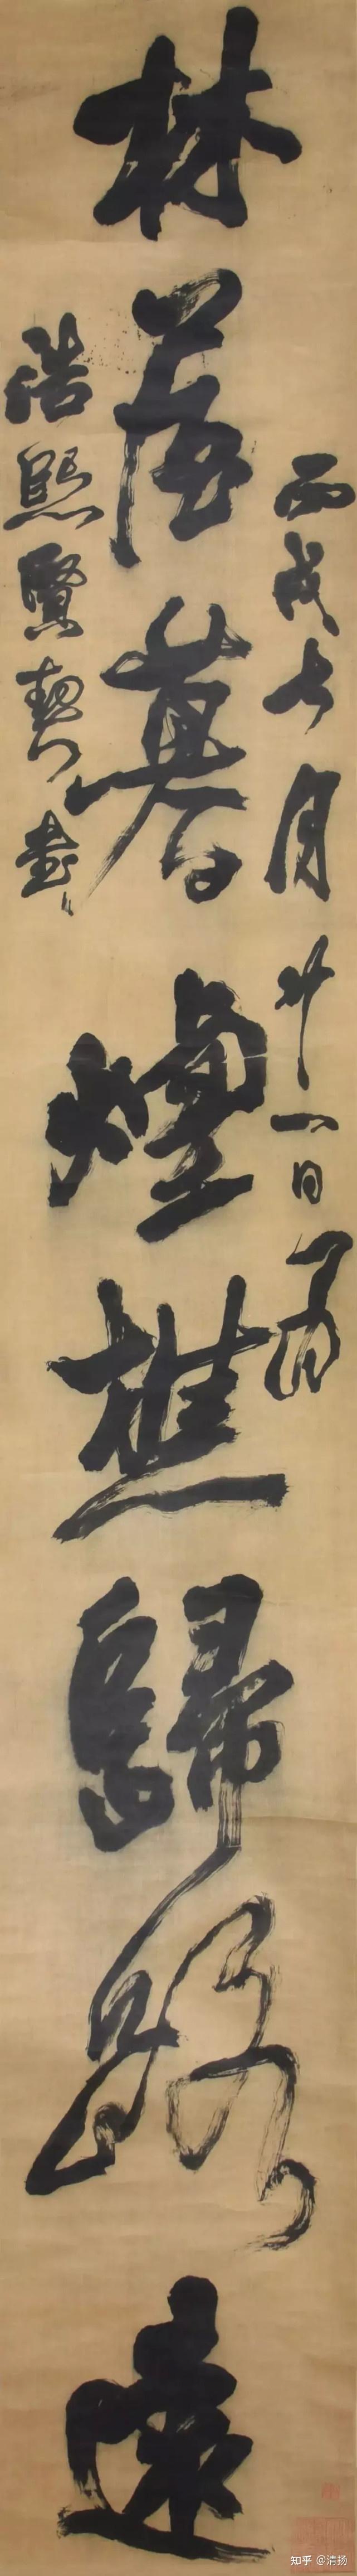 丙戌七月廿一日为
林暮煙樵歸路遠
熙賢契書
知乎 @清扬